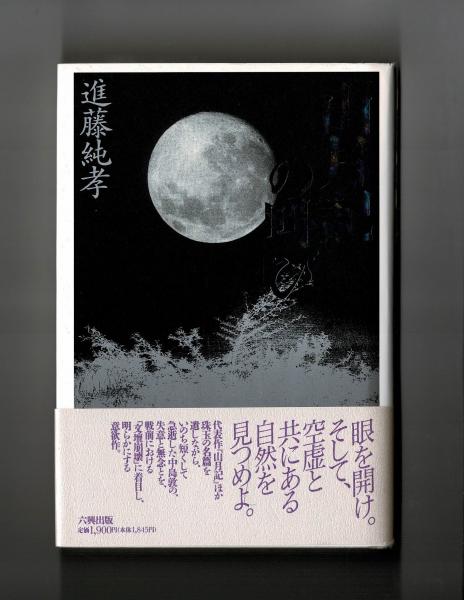 山月記の叫び
進藤純孝
眼を開け。
そして、
空虚と
共にある
自然を
見つめよ。
代表作「山月記」ほか
珠玉の名篇を
遺しながら、
いのち短くして
急逝した中島敦の、
失意と無念とを、
戦前における
“文壇崩壊”に着目し、
明らかにする
意欲作。
六興出版
定価1,900円(本体1,845円)